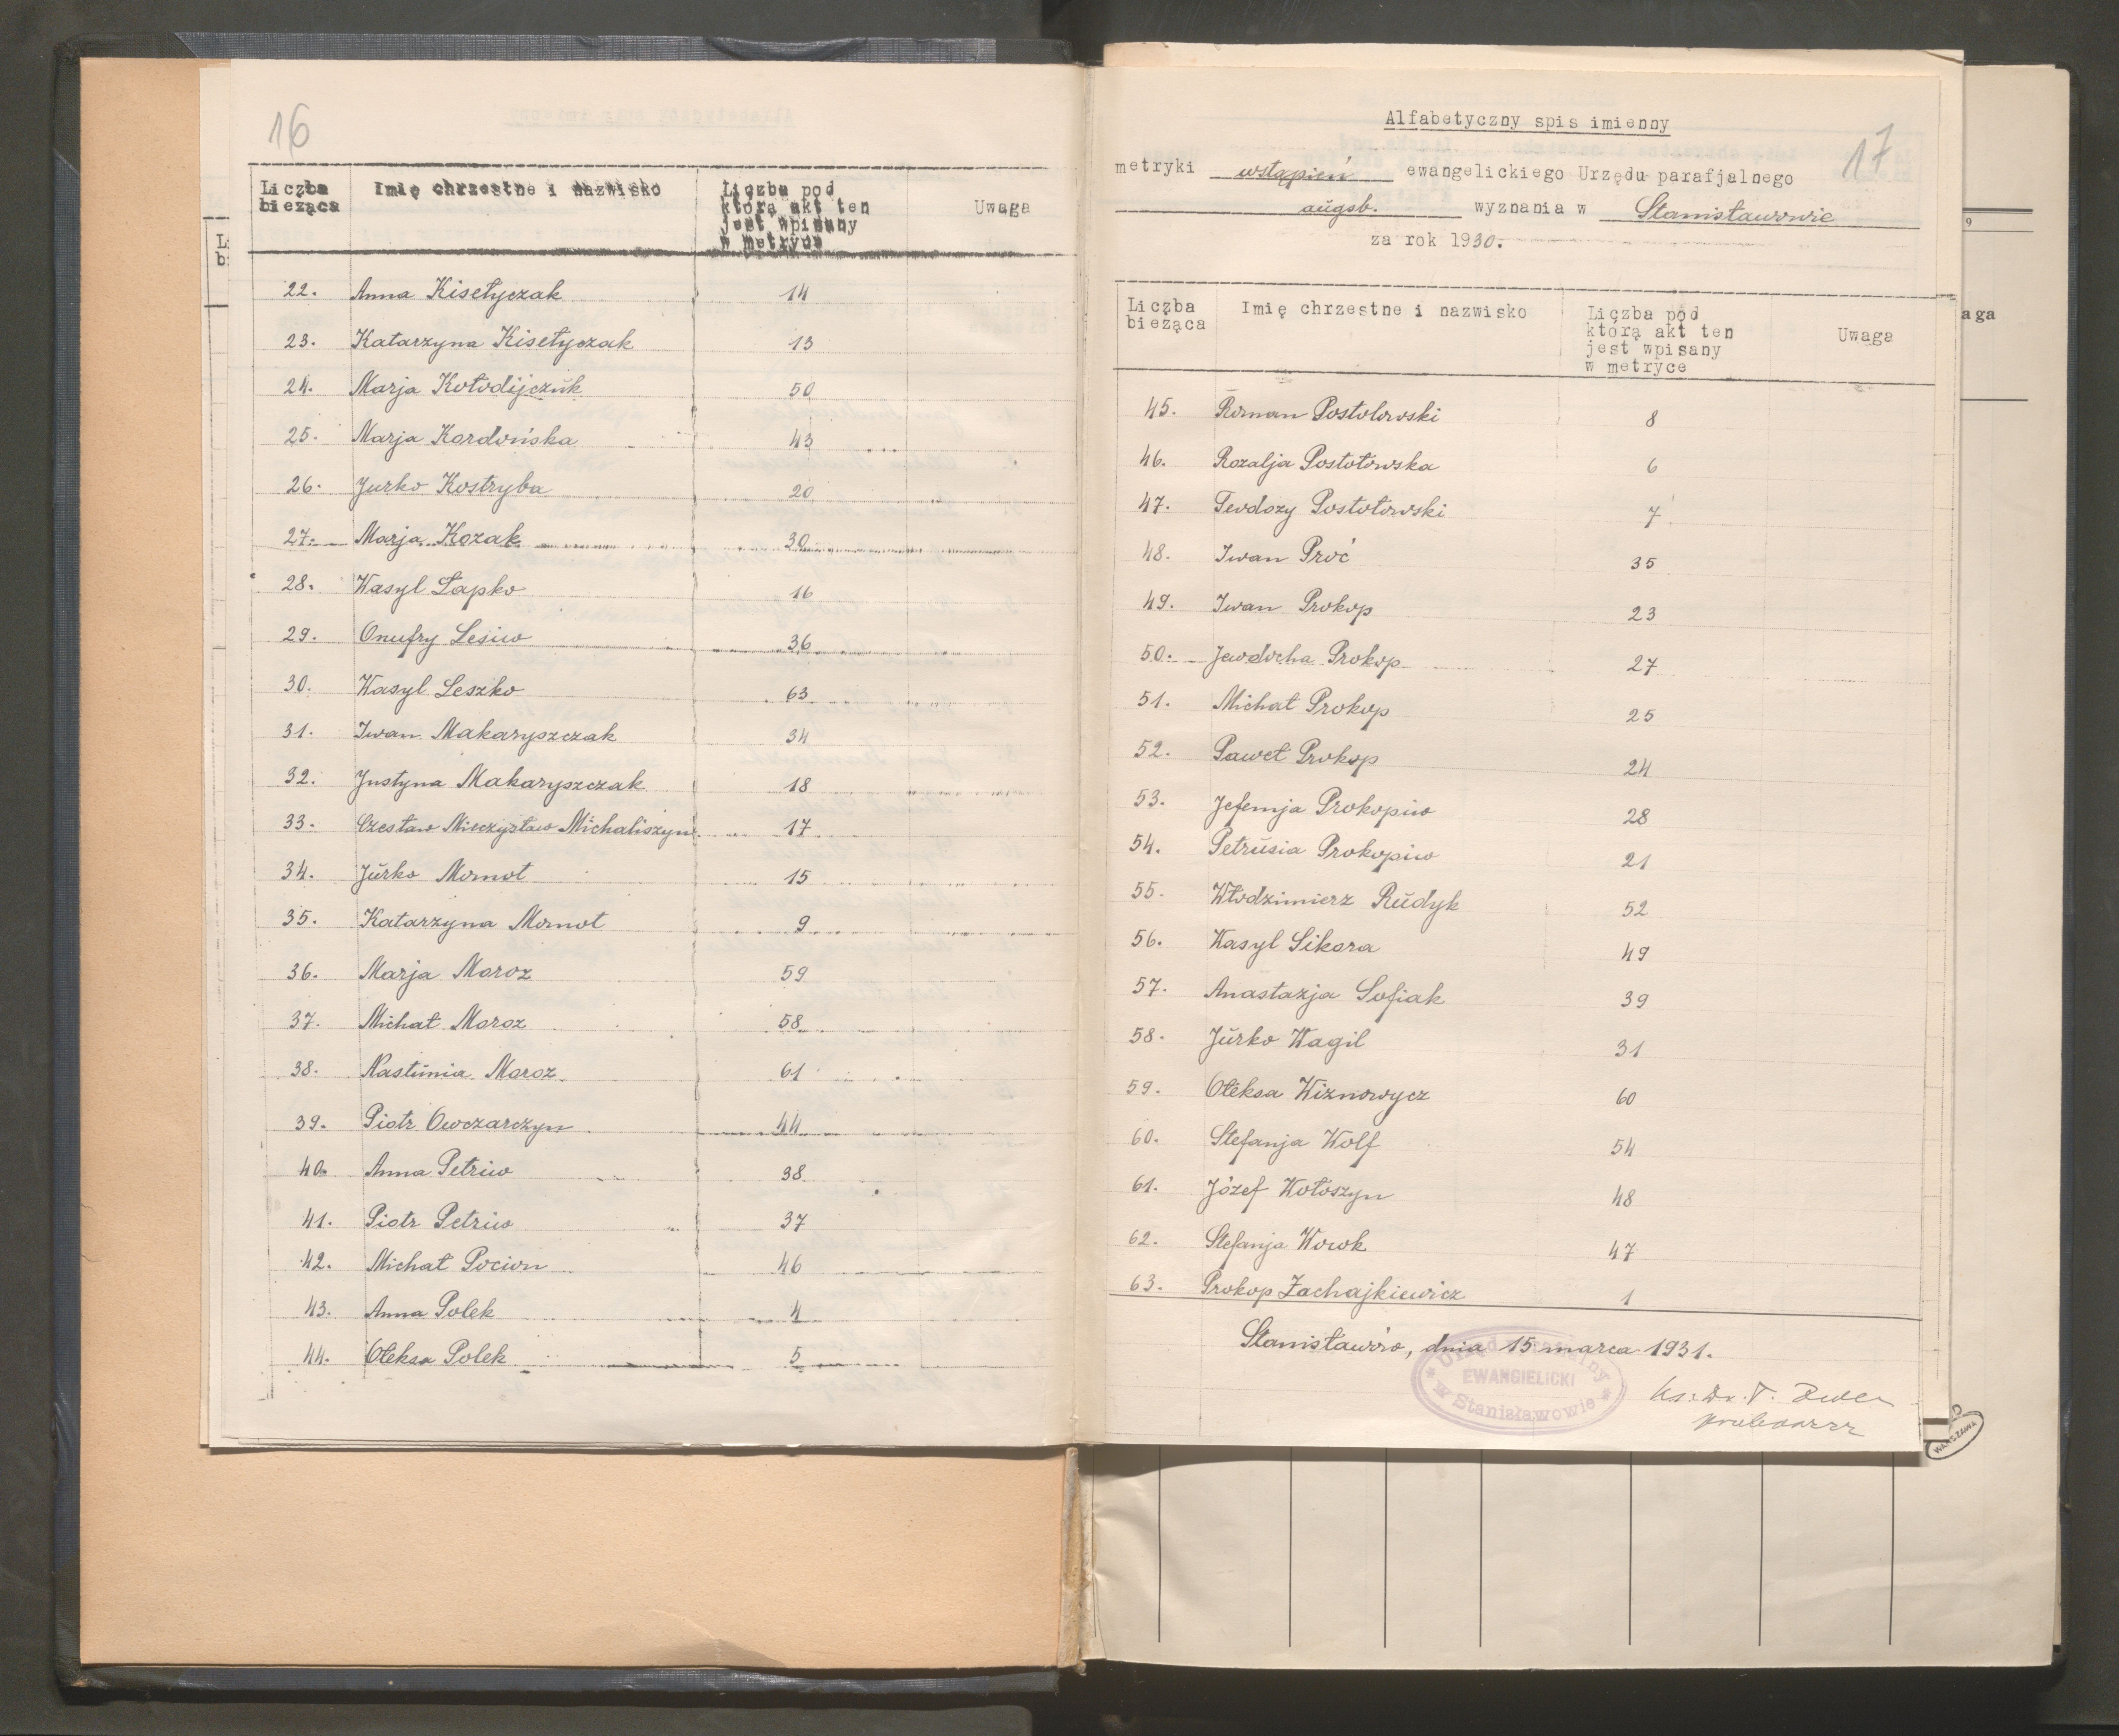 16
Liczba bieżąca Imię chrzestne i nazwisko Liczba pod którą akt ten jest wpisany w metryce Uwaga
22. Anna Kisełyczak 14
23. Katarzyna Kisełyczak 13
24. Marja Kołodijczuk 50
25. Marja Kordońska 43
26. Jurko Kostryba 20
27. Marja Kozak 30
28. Wasyl Łapko 16
29. Onufry Lesiw 36
30. Wasyl Leszko 63
31. Iwan Makaryszczak 34
32. Justyna Makaryszczak 18
33. Czesław Mieczysław Michaliszyn 17
34. Jŭrko Mornot 15
35. Katarzyna Mornot 9
36. Marja Moroz 59
37. Michał Moroz 58
38. Nastŭnia Moroz 61
39. Piotr Owczarczyn 44
40. Anna Petriw 38
41. Piotr Petriw 37
42. Michał Pocion 46
43. Anna Polek 4
44. Ołeksa Polek 5
17
Alfabetyczny spis imienny
metryki wstąpień ewangelickiego Urzędu parafjalnego
augsb. wyznania w Stanisławowie
za rok 1930.
Liczba bieżąca Imię chrzestne i nazwisko Liczba pod którą akt ten jest wpisany w metryce Uwaga
45. Roman Postolowski 8
46. Rozalja Postołowska 6
47. Teodozy Postołowski 7
48. Iwan Proć 35
49. Iwan Prokop 23
50. Jewdocha Prokop 27
51. Michał Prokop 25
52. Paweł Prokop 24
53. Jefemja Prokopiw 28
54. Petrŭsia Prokopiw 21
55. Włodzimierz Rŭdyk 52
56. Wasyl Sikora 49
57. Anastazja Sofiak 39
58. Jŭrko Wagil 31
59. Ołeksa Wiznowycz 60
60. Stefanja Wolf 54
61. Józef Wołoszyn 48
62. Stefanja Wowk 47
63. Prokop Zachajkiewicz 1
Stanisławów, dnia 15 marca 1931.
Urząd Parafialny
EWANGIELICKI
w Stanisławowie
Ks. Dr. T.
9
aga
WARSZAWA